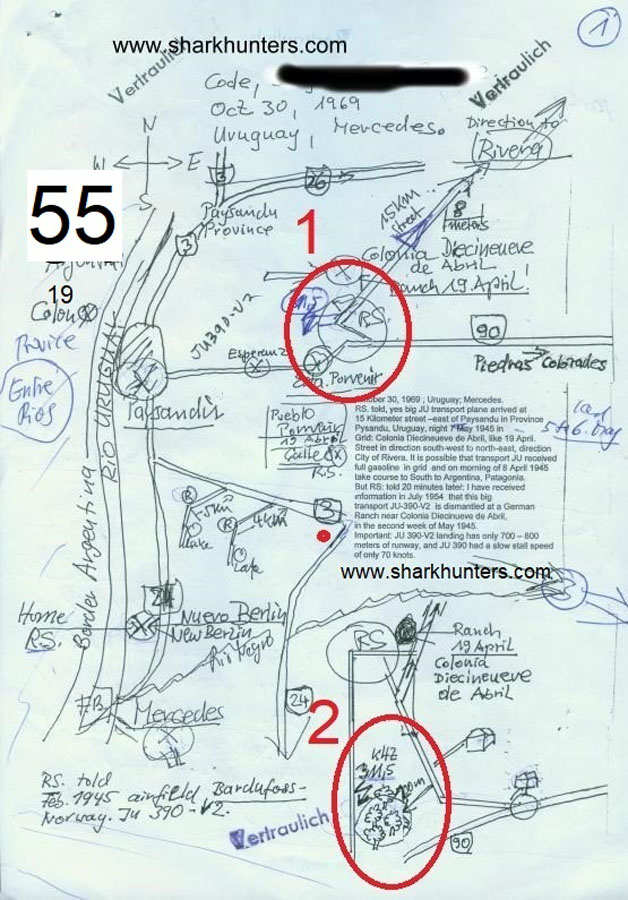 www.sharkhunters.com
1
Vertraulich
Vertraulich
Code,
Oct 30, 1969
Uruguay, Mercedes.
Direction to
Rivera
N
W
E
S
3
26
55
Paysandu
Province
3
1
15km
street
8
meters
Colonia Diecineueve
de Abril
Ranch 19. April!
19
Colon
JU390-V2
RS.
90
Piedras Colorades
Entre
Rios
Esperanz
Porvenir
RIO URUGUAY
Paysandu
Pueblo
Porvenir
19 Abril
Calle
R.S.
October 30, 1969 ; Uruguay; Mercedes.
RS. told, yes big JU transport plane arrived at
15 Kilometer street –east of Paysandu in Province
Pysandu, Uruguay, night 7 May 1945 in
Grid: Colonia Diecineueve de Abril, like 19 April.
Street in direction south-west to north-east, direction
City of Rivera. It is possible that transport JU received
full gasoline in grid and on morning of 8 April 1945
take course to South to Argentina, Patagonia.
But RS: told 20 minutes later; I have received
information in July 1954 that this big
transport JU-390-V2 is dismantled at a German
Ranch near Colonia Diecineueve de Abril,
in the second week of May 1945.
Important: JU 390-V2 landing has only 700 – 800
meters of runway, and JU 390 had a slow stall speed
of only 70 knots.
R
R
4km
3
Lake
www.sharkhunters.com
Border Argentina
24
Home
RS.
Nuevo Berlin
New Berlin
Rio Negro
RS
Ranch
19 April
Colonia
Diecineueve
de Abril
24
2
Mercedes
KHZ
311,5
90
RS. told
Feb. 1945 airfield Bardufoss-
Norway. Ju 390-V2.
Vertraulich